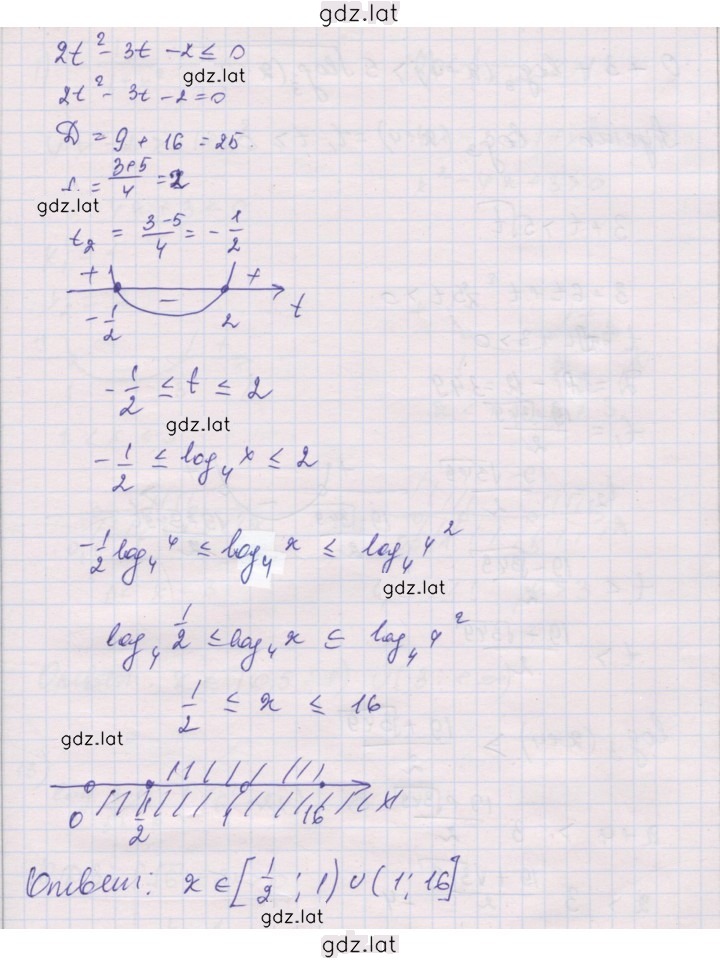 gdz.lat
2t² - 3t - 2 ≤ 0
gdz.lat
2t² - 3t - 2 = 0
D = 9 + 16 = 25.
= (3+5)/4 = 2
gdz.lat
t₂ = (3-5)/4 = -1/2
+ - + t
-1/2 2
-1/2 ≤ t ≤ 2
gdz.lat
-1/2 ≤ log₄ x ≤ 2
-1/2 log₄ 4 ≤ log₄ x ≤ log₄ 4²
gdz.lat
log₄ 1/2 ≤ log₄ x ≤ log₄ 4²
1/2 ≤ x ≤ 16
gdz.lat
0 1/2 1 16 x
Ответ: x ∈ [1/2 ; 1) ∪ (1; 16]
gdz.lat
gdz.lat